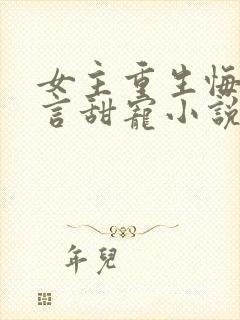 女主重生悔
言甜寵小說
年兒